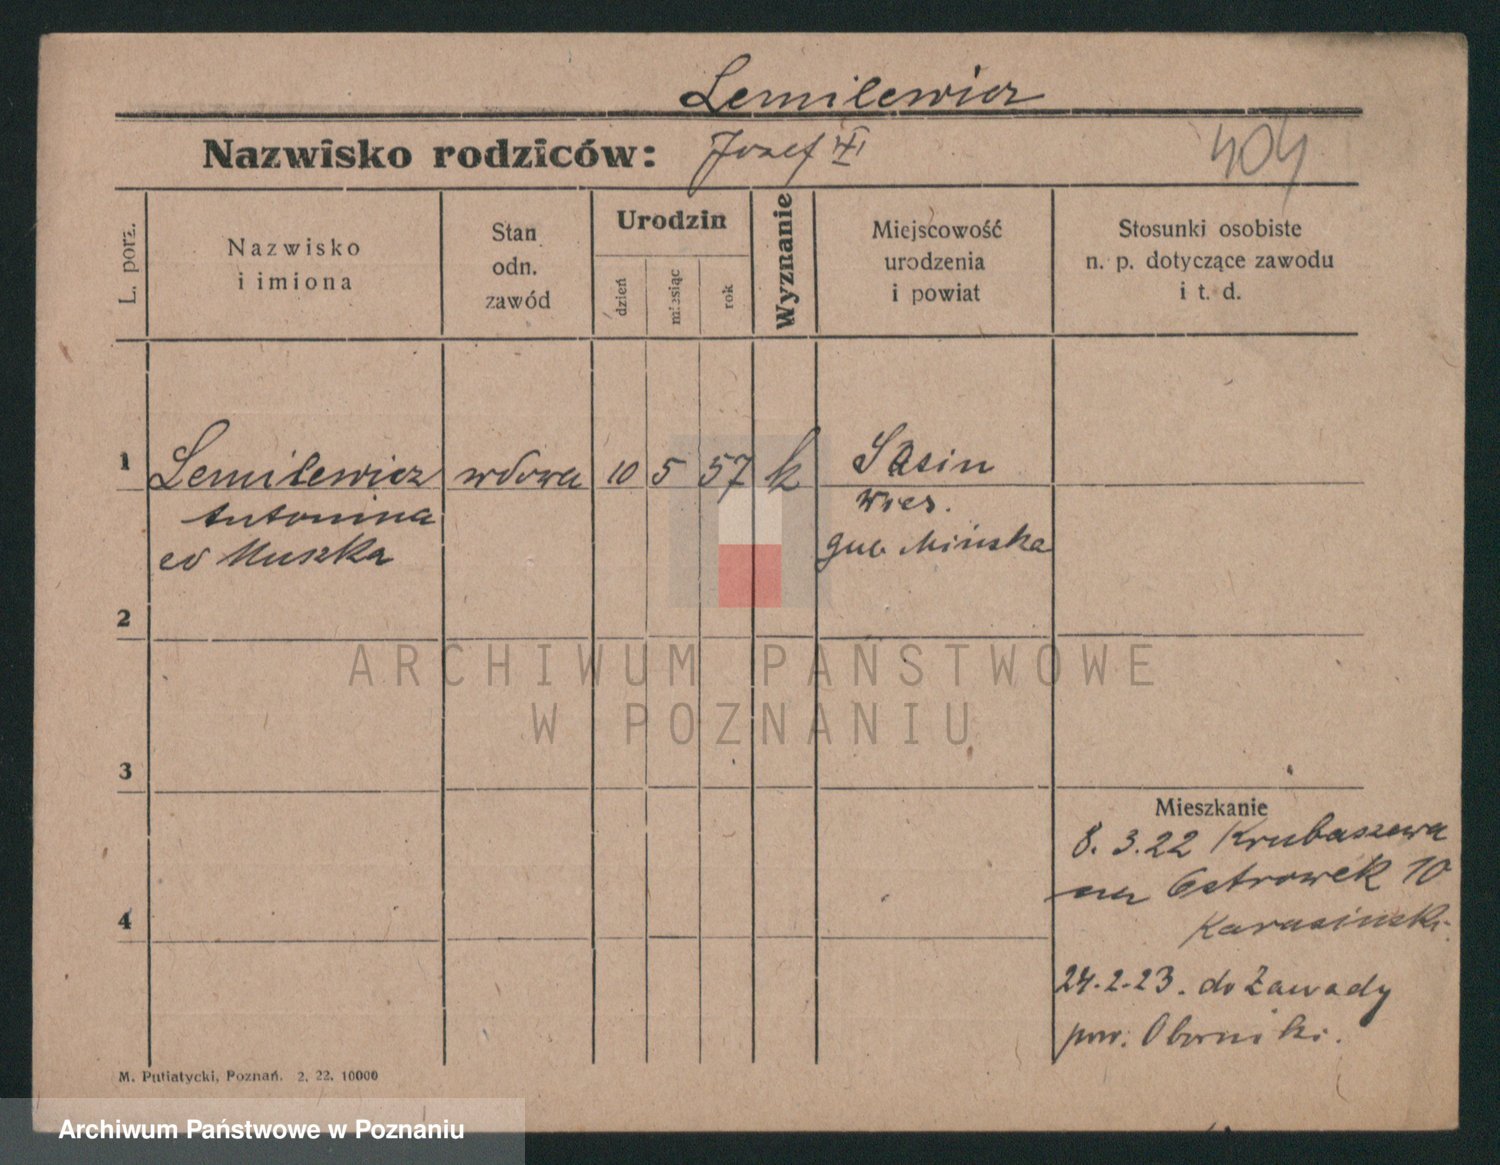 Lemilewicz
Nazwisko rodziców: Józef
404
L. porz.
Nazwisko
i imiona
Stan
odn.
zawód
Urodzin
dzień
miesiąc
rok
Wyznanie
Miejscowość
urodzenia
i powiat
Stosunki osobiste
n. p. dotyczące zawodu
i t. d.
1 Lemilewicz wdowa 10 5 57 k Sasin
Antonina wies.
Muszka gub Mińska
2
ARCHIWUM PAŃSTWOWE
W POZNANIU
3
Mieszkanie
8. 3. 22
Ostrówek 10
4
24.2.23. do Zawady
pow. Oborniki.
M. Putiatycki, Poznań. 2, 22. 10000
Archiwum Państwowe w Poznaniu